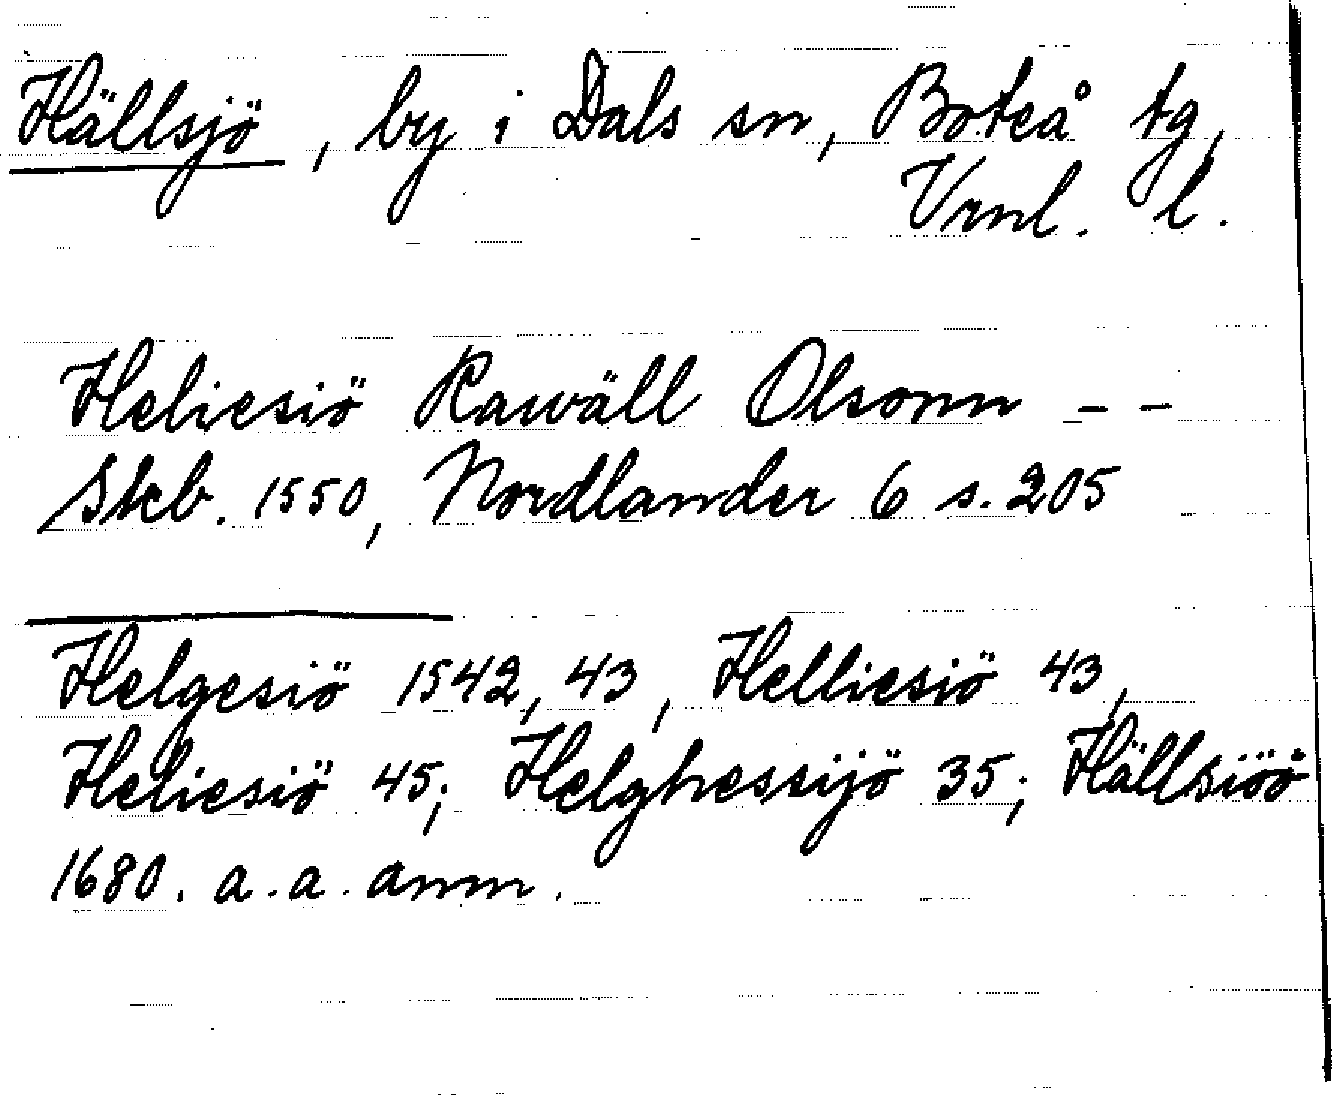 Hällsjö, by i Dals sn, Boteå tg,
Vrnl. l.
Heliesiö Rawäll Olsonn - -
Skb. 1550, Nordlander 6 s. 205
Helgesiö 1542, 43, Helliesiö 43,
Heliesiö 45; Helghessijö 35; Hällsiöö
1680. a. a. anm.